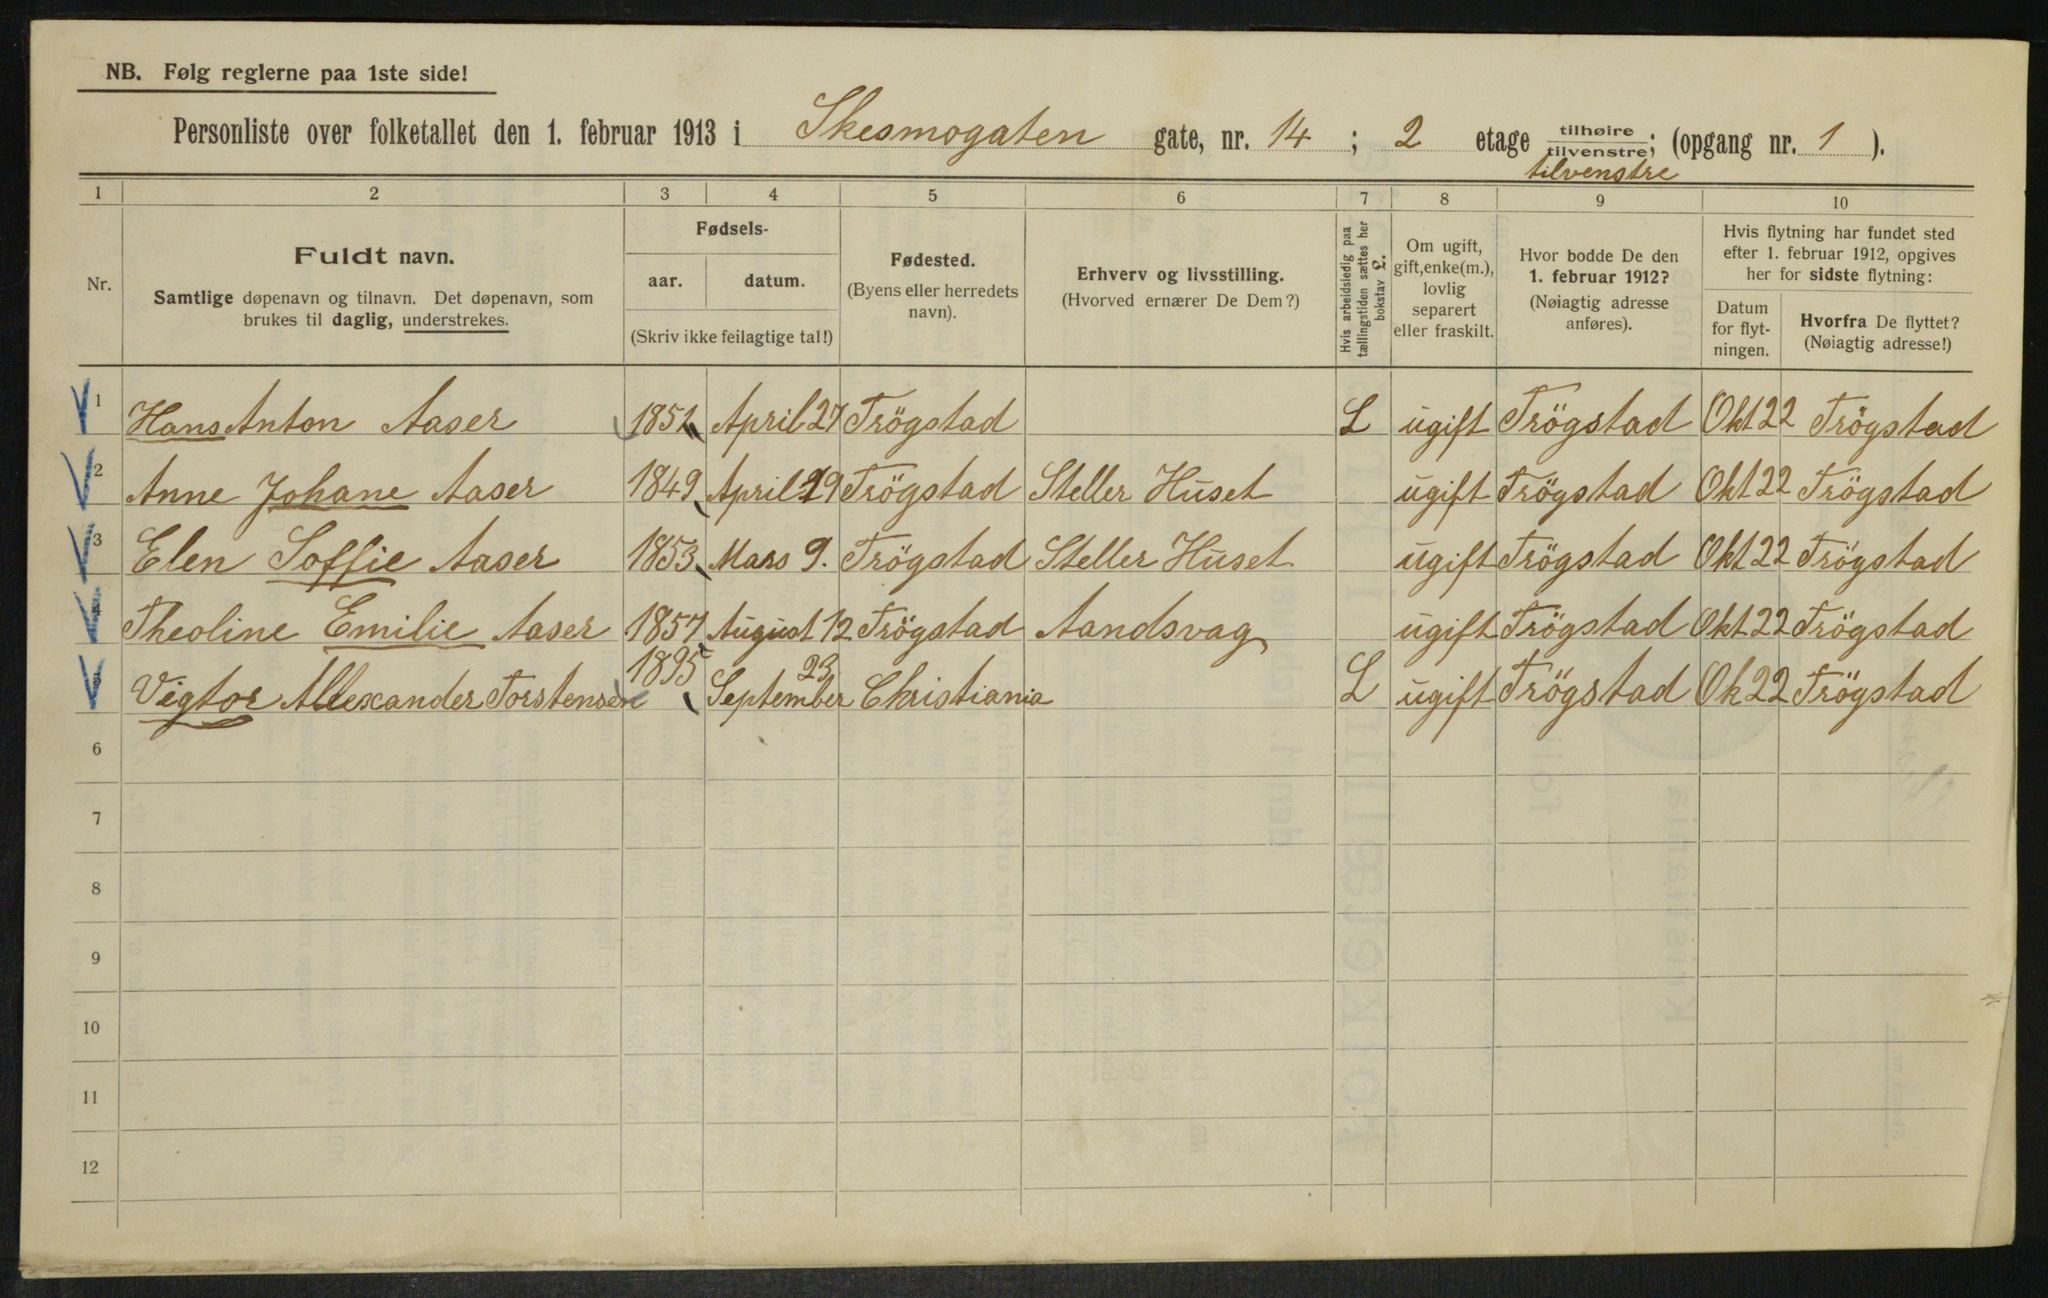 NB. Følg reglerne paa 1ste side!
Personliste over folketallet den 1. februar 1913 i Skesmogaten gate, nr. 14 ; 2 etage tilhøire / tilvenstre; (opgang nr. 1 ).
tilvenstre
1 2 3 4 5 6 7 8 9 10
Nr.
Fuldt navn.
Samtlige døpenavn og tilnavn. Det døpenavn, som
brukes til daglig, understrekes.
Fødsels-
aar. datum.
(Skriv ikke feilagtige tal!)
Fødested.
(Byens eller herredets
navn).
Erhverv og livsstilling.
(Hvorved ernærer De Dem?)
Hvis arbeidsledig paa
tællingstiden sættes her
bokstav L.
Om ugift,
gift, enke(m.),
lovlig
separert
eller fraskilt.
Hvor bodde De den
1. februar 1912?
(Nøiagtig adresse
anføres).
Hvis flytning har fundet sted
efter 1. februar 1912, opgives
her for sidste flytning:
Datum
for flyt-
ningen.
Hvorfra De flyttet?
(Nøiagtig adresse!)
1 Hans Anton Aaser 1851 April 27 Trögstad L ugift Trögstad Okt 22 Trögstad
2 Anne Johane Aaser 1849 April 29 Trögstad Steller Huset ugift Trögstad Okt 22 Trögstad
3 Elen Soffie Aaser 1853 Mars 9. Trögstad Steller Huset ugift Trögstad Okt 22 Trögstad
4 Theoline Emilie Aaser 1857 August 12 Trögstad Aandsvag ugift Trögstad Okt 22 Trögstad
5 Vigtor Allexander Torstensen 1895 September 23 Christiania L ugift Trögstad Ok 22 Trögstad
6
7
8
9
10
11
12